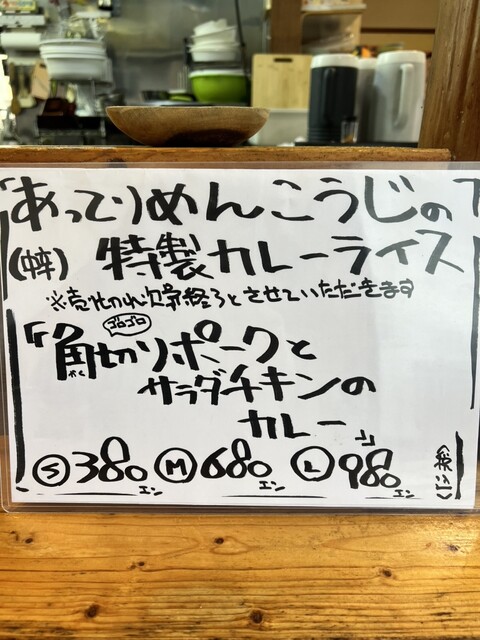 「あってりめんこうじの」
(中辛) 特製カレーライス
※売り切れ次第終了とさせていただきます
ゴロゴロ
「角切りポークと
かく
サラダチキンの
カレー」
Ⓢ380エン Ⓜ680エン Ⓛ980エン
(税込)